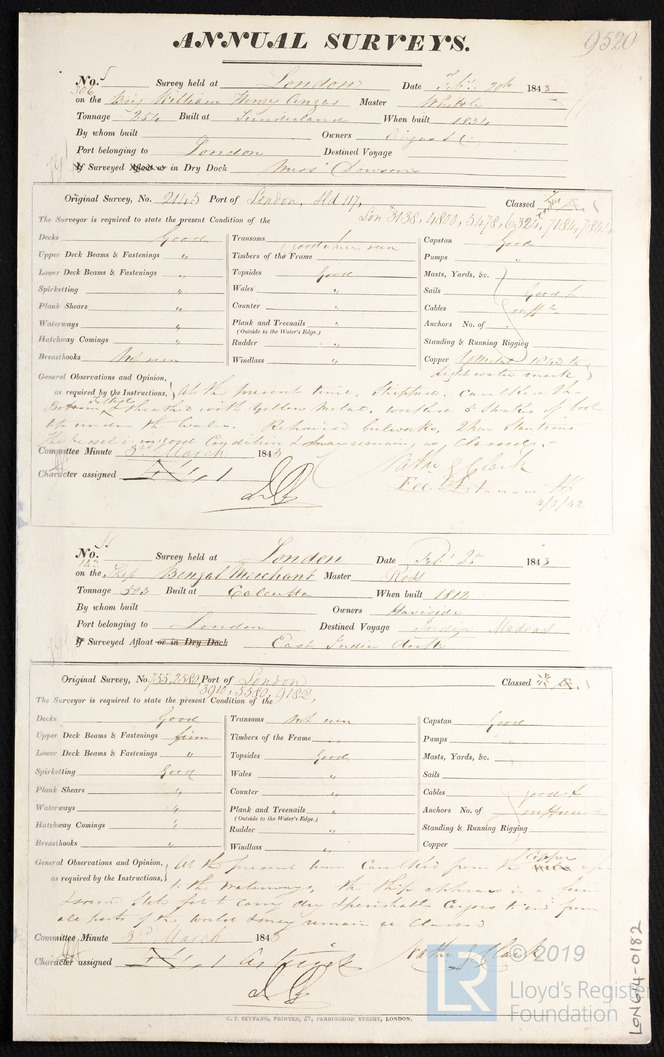 ANNUAL SURVEYS.
9520
No. 5 Survey held at London Date Feby 1843
306
on the Brig William Henry Angas Master
Tonnage 254 Built at Sunderland When built 1834
By whom built Owners Angas &c
Port belonging to London Destined Voyage
If Surveyed Afloat or in Dry Dock Miss Dowsons
Original Survey, No. 2145 Port of London, Classed
Lon 3138, 4800, 5478, 6324, 7184,
The Surveyor is required to state the present Condition of the
Decks Good Transoms good where seen Capstan Good
Upper Deck Beams & Fastenings " Timbers of the Frame Pumps "
Lower Deck Beams & Fastenings " Topsides Good Masts, Yards, &c.
Spirketting " Wales " Sails Good &
Plank Shears " Counter " Cables sufft
Waterways " Plank and Treenails " Anchors No. of
(Outside to the Water's Edge.)
Hatchway Comings " Rudder " Standing & Running Rigging
Breasthooks Not seen Windlass " Copper Y Metal 1843 to
light water mark
General Observations and Opinion, as required by the Instructions, At the present time, Stripped, caulked the
Bottom, felted & sheathed with Yellow Metal, caulked 2 Strakes of
up under the Wales. Repaired bulwarks, Stantions
the vessel is in good Condition & may remain, as Classed.
Committee Minute 3rd March 1843
Character assigned A 1
Nathl J Clark
4/3/42
No. 4 Survey held at London Date Feby 1843
on the Ship Bengal Merchant Master Ross
Tonnage 503 Built at Calcutta When built 1812
By whom built Owners Haviside
Port belonging to London Destined Voyage India Madras
If Surveyed Afloat or in Dry Dock East India Docks
Original Survey, No. 755, 2580, Port of London Classed
3910, 5580, 9182,
The Surveyor is required to state the present Condition of the
Decks Good Transoms Not seen Capstan Good
Upper Deck Beams & Fastenings firm Timbers of the Frame Pumps
Lower Deck Beams & Fastenings " Topsides Good Masts, Yards, &c.
Spirketting Good Wales " Sails
Plank Shears " Counter " Cables good &
Waterways " Plank and Treenails " Anchors No. of sufficient
(Outside to the Water's Edge.)
Hatchway Comings " Rudder " Standing & Running Rigging
Breasthooks " Windlass " Copper
General Observations and Opinion, as required by the Instructions, At the present time Caulked from the Copper up
to the Waterways, the Ship appears in a firm
& sound State fit to carry dry & perishable Cargoes to and from
all parts of the World & may remain as Classed
Committee Minute 3rd March 1843
Character assigned
Nathl J Clark
C. F. SEYFANG, PRINTER, 57, FARRINGDON STREET, LONDON.
LR © 2019
Lloyd's Register
Foundation
LON 614-0182